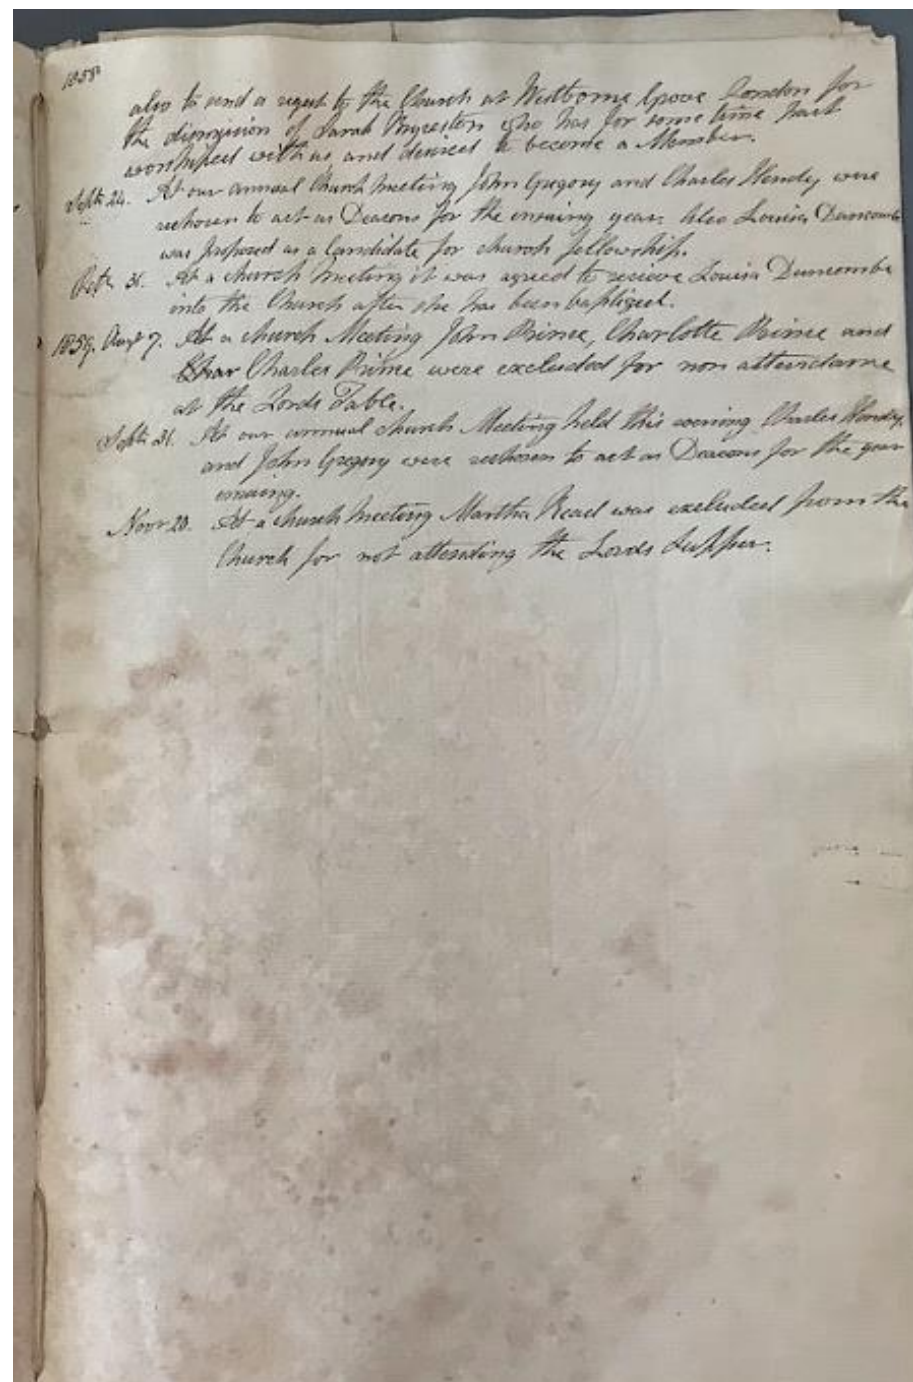 1858
also to send a request to the Church at Westborne Grove London for
the dismission of Sarah who has for some time past
worshiped with us and desires to become a Member.
Septr 24. At our annual Church Meeting John Gregory and Charles Hendy were
rechosen to act as Deacons for the ensuing year. Also Louisa Duncombe
was proposed as a Candidate for church fellowship.
Octr 31. At a church meeting it was agreed to recieve Louisa Duncombe
into the Church after she has been baptized.
1859. Augt 7. At a church Meeting John Prime, Charlotte Prime and
Char Charles Prime were excluded for non attendance
at the Lords Table.
Septr 21. At our annual church Meeting held this evening Charles Hendy,
and John Gregory were rechosen to act as Deacons for the year
ensuing.
Novr 20. At a church meeting Martha Read was excluded from the
Church for not attending the Lords Supper.